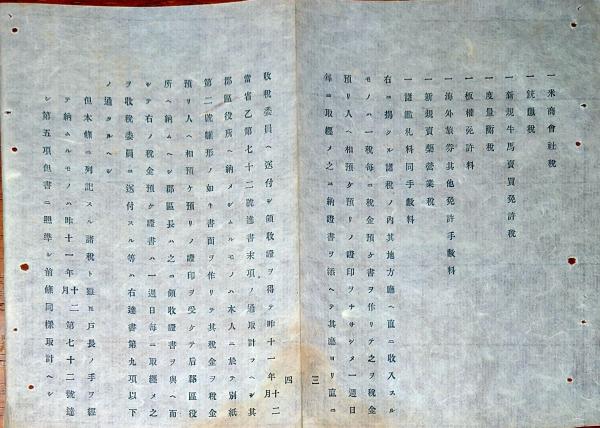 一米商會社税
一銃獵税
一新規牛馬賣買免許税
一度量衡税
一板權免許料
一海外旅券其他免許手數料
一新規賣藥營業税
一諸鑑札料同手數料
右ニ掲クル諸税ノ內其地方廳ヘ直ニ收入スル
モノハ一税毎ニ税金預ケ書ヲ作リテ之ヲ税金
預リ人ヘ相預ケ預リノ證印ヲナサシメ一週日
毎ニ取纒メ之ニ納證書ヲ添ヘテ其廳ヨリ直ニ
三
四
收税委員ヘ送付シ領收證ヲ得テ昨十一年十二月
當省乙第七十二號達書末項ノ通取計フヘシ其
郡區役所ヘ納メシムルモノハ本人ニ於テ別紙
第二號雛形ノ如キ書面ヲ作リテ其税金ヲ税金
預リ人ヘ相預ケ預リノ證印ヲ受ケテ后郡區役
所ヘ納ムヘシ郡區長ハ之ニ領收證書ヲ與ヘ而
シテ右ノ税金預ケ證書ハ一週日毎ニ取纒メ之
ヲ收税委員ニ送付スル等ハ右達書第九項以下
ノ通タルヘシ
但本條ニ列記スル諸税ト雖モ戸長ノ手ヲ經
テ納ムルモノハ昨十一年十二月第七十二號達
シ第五項但書ニ照準シ前條同樣取計ヘシ